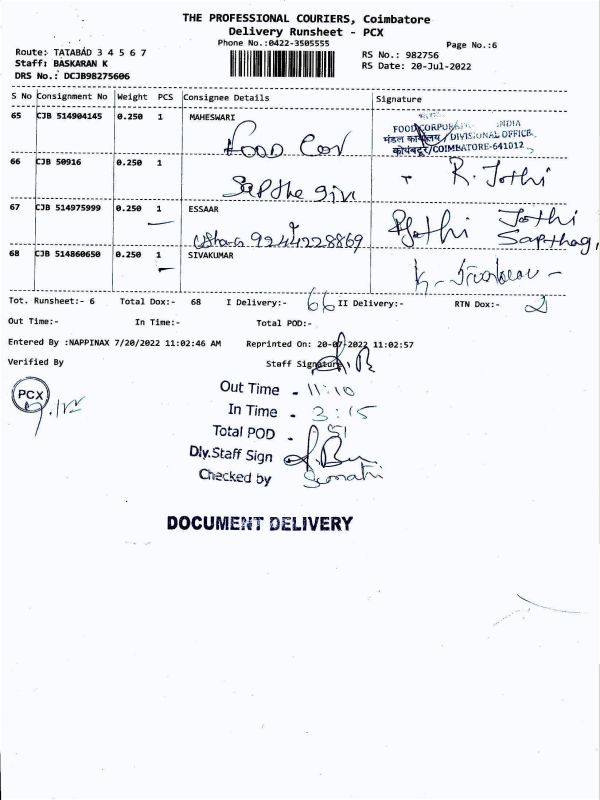 THE PROFESSIONAL COURIERS, Coimbatore
Delivery Runsheet - PCX
Phone No.:0422-3505555
Page No.:6
Route: TATABAD 3 4 5 6 7
RS No.: 982756
Staff: BASKARAN K
RS Date: 20-Jul-2022
DRS No.: DCJB98275606
S No Consignment No Weight PCS Consignee Details Signature
65 CJB 514904145 0.250 1 MAHESWARI
FOOD CORPORATION INDIA
मंडल कार्यालय/DIVISIONAL OFFICE
कोयंबटूर/COIMBATORE-641012
Food Cor
66 CJB 50916 0.250 1
R. Jothi
Sapthagiri
67 CJB 514975999 0.250 1 ESSAAR
Jothi
9244228869
Jothi
68 CJB 514860650 0.250 1 SIVAKUMAR
Tot. Runsheet:- 6 Total Dox:- 68 I Delivery:- 66 II Delivery:- RTN Dox:- 2
Out Time:- In Time:- Total POD:-
Entered By :NAPPINAX 7/20/2022 11:02:46 AM Reprinted On: 20-07-2022 11:02:57
Verified By Staff Signature
PCX
Out Time - 11:10
In Time - 3:15
Total POD - 51
Dly.Staff Sign
Checked by Sumathi
DOCUMENT DELIVERY